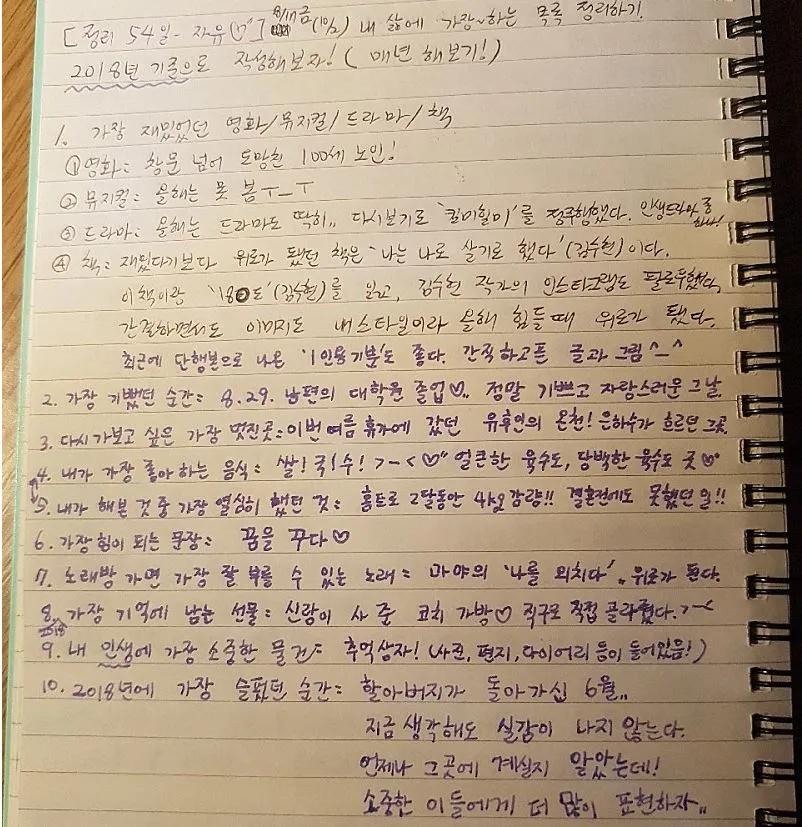 [정리 54일- 자유♡"] 8/17금 (10/2) 내 삶에 가장~하는 목록 정리하기.
2018년 기준으로 작성해보자! ( 매년 해보기! )
1. 가장 재밌었던 영화/뮤지컬/드라마/책
① 영화: 창문 넘어 도망친 100세 노인!
② 뮤지컬: 올해는 못 봄ㅜ_ㅜ
③ 드라마: 올해는 드라마도 딱히.. 다시보기로 '킬미힐미'를 정주행했다. 인생드라마 중 하나!
④ 책: 재밌다기보다 위로가 됐던 책은 '나는 나로 살기로 했다'(김수현)이다.
이책이랑 '180도'(김수현)를 읽고, 김수현 작가의 인스타그램도 팔로우했다.
간결하면서도 이미지도 내스타일이라 올해 힘들때 위로가 됐다.
최근에 단행본으로 나온 '1인용기분'도 좋다. 간직하고픈 글과 그림^_^
2. 가장 기뻤던 순간: 8.29. 남편의 대학원 졸업♡.. 정말 기쁘고 자랑스러운 그날.
3. 다시 가보고 싶은 가장 멋진곳: 이번 여름 휴가에 갔던 유후인의 온천! 은하수가 흐르던 그곳.
4. 내가 가장 좋아 하는 음식: 쌀!국!수! >-<♡" 얼큰한 육수도, 담백한 육수도 굿♡"
5. 내가 해본 것 중 가장 열심히 했던 것: 홈트로 2달동안 4kg감량!! 결혼전에도 못했던 일!!
6. 가장 힘이 되는 문장: 꿈을 꾸다♡
7. 노래방 가면 가장 잘 부를 수 있는 노래: 마야의 '나를 외치다'.. 위로가 된다.
8. 2018 가장 기억에 남는 선물: 신랑이 사 준 코치 가방♡ 직구로 직접 골라줬다.>-<
9. 내 인생에 가장 소중한 물건: 추억상자! (사진, 편지, 다이어리 등이 들어있음!)
10. 2018년에 가장 슬펐던 순간: 할아버지가 돌아가신 6월..
지금 생각해도 실감이 나지 않는다.
언제나 그곳에 계실지 알았는데!
소중한 이들에게 더 많이 표현하자..